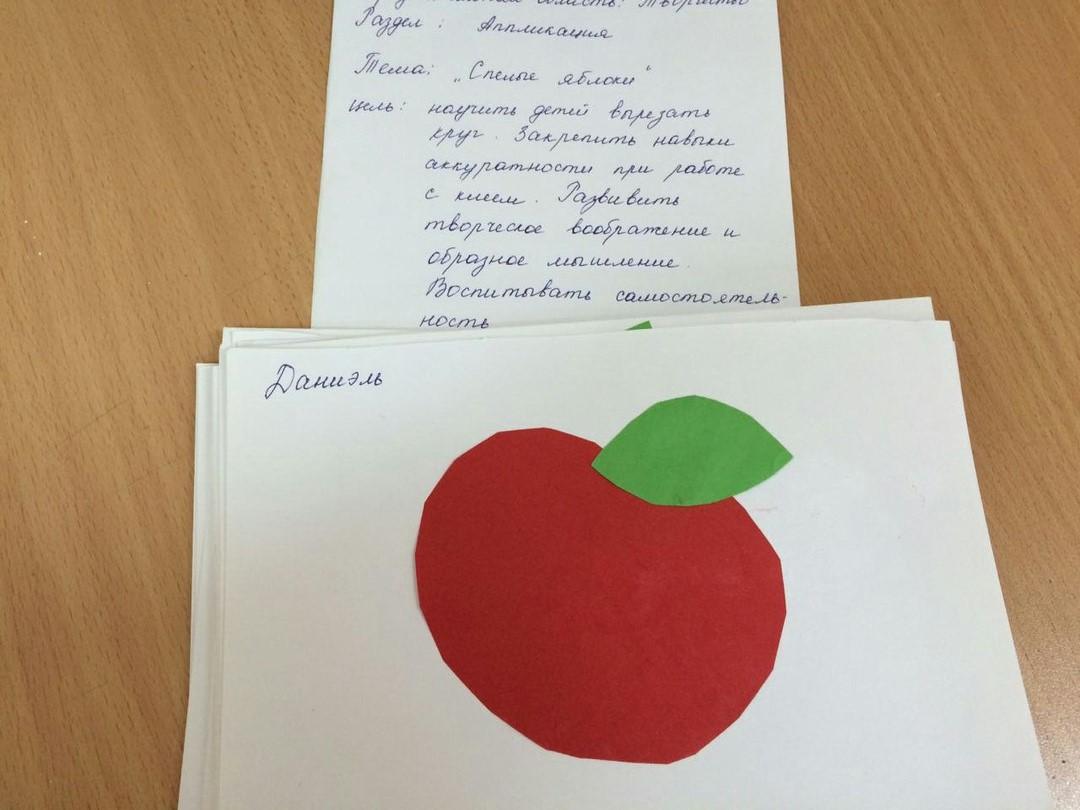 область: Творчество
Раздел: Аппликация
Тема: „Спелые яблоки"
Цель: научить детей вырезать
круг. Закрепить навыки
аккуратности при работе
с клеем. Развивить
творческое воображение и
образное мышление.
Воспитывать самостоятель-
ность
Даниэль